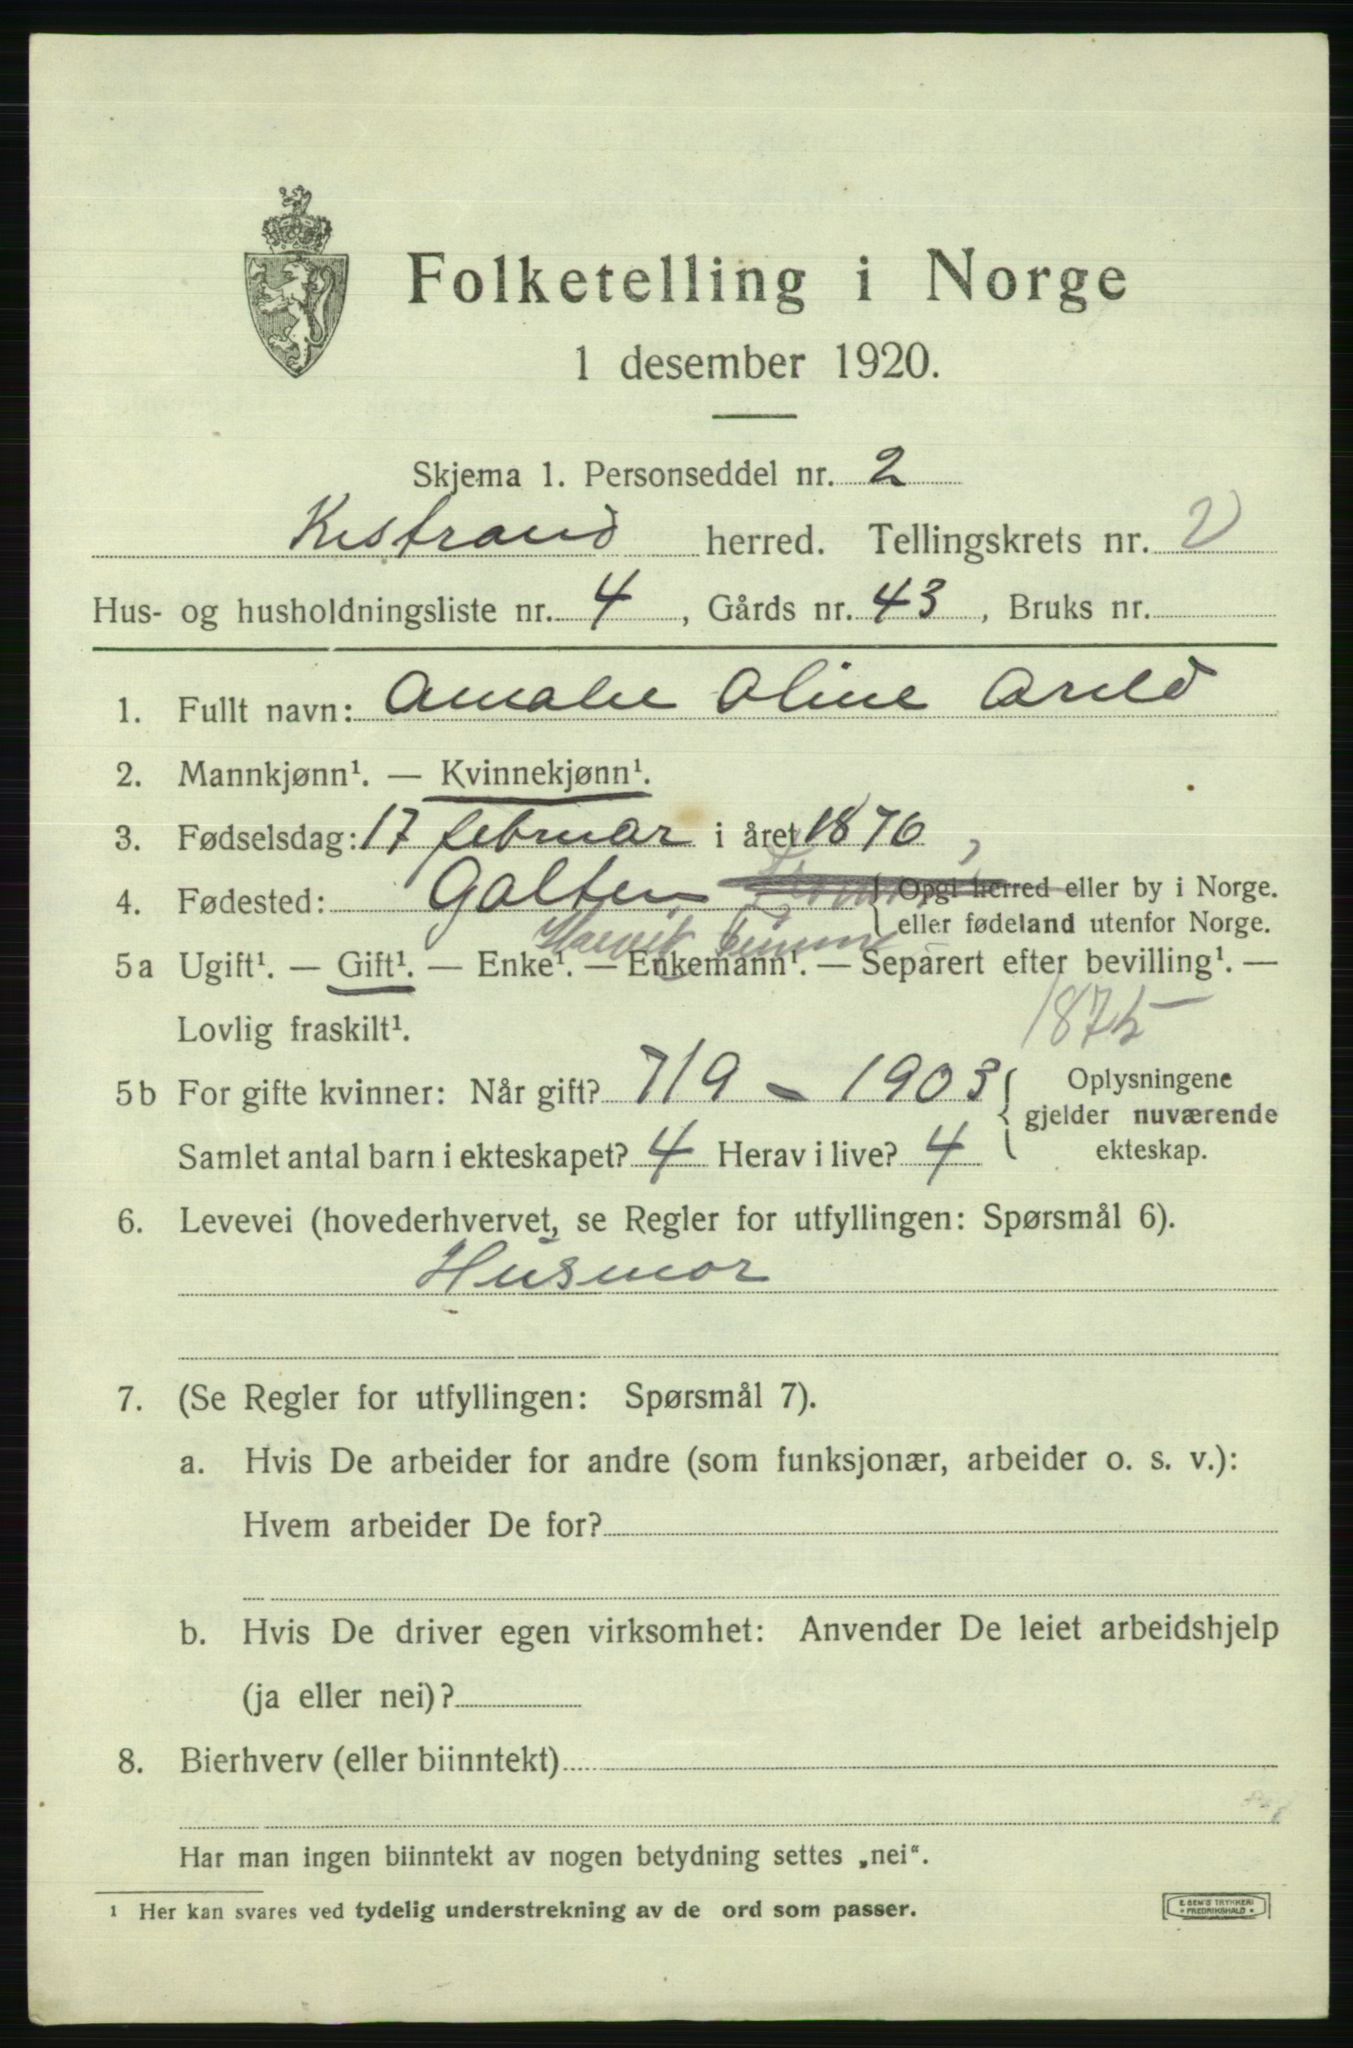 Folketelling i Norge
1 desember 1920.
Skjema 1. Personseddel nr. 2
Kistrand herred. Tellingskrets nr. 2
Hus- og husholdningsliste nr. 4, Gårds nr. 43, Bruks nr.
1. Fullt navn: Amalie Oline Arild
2. Mannkjønn¹. — Kvinnekjønn¹.
3. Fødselsdag: 17 februar i året 1876
4. Fødested: Galten { Opgi herred eller by i Norge.
eller fødeland utenfor Norge.
5a Ugift¹. — Gift¹. — Enke¹. — Enkemann¹. — Separert efter bevilling¹. —
Lovlig fraskilt¹.
1875
5b For gifte kvinner: Når gift? 7/9 - 1903 { Oplysningene
gjelder nuværende
Samlet antal barn i ekteskapet? 4 Herav i live? 4 ekteskap.
6. Levevei (hovederhvervet, se Regler for utfyllingen: Spørsmål 6).
Husmor
7. (Se Regler for utfyllingen: Spørsmål 7).
a. Hvis De arbeider for andre (som funksjonær, arbeider o. s. v.):
Hvem arbeider De for?
b. Hvis De driver egen virksomhet: Anvender De leiet arbeidshjelp
(ja eller nei)?
8. Bierhverv (eller biinntekt)
Har man ingen biinntekt av nogen betydning settes „nei“.
¹ Her kan svares ved tydelig understrekning av de ord som passer.
E. SEM'S TRYKKERI
• FREDRIKSHALD •